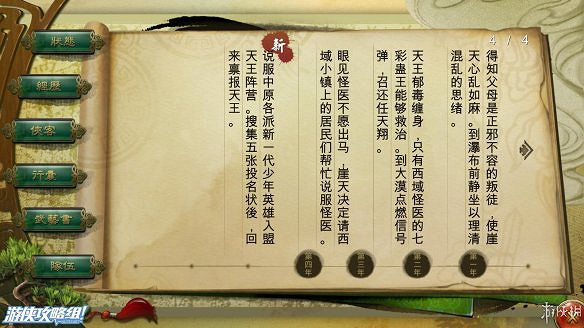 狀態
經歷
俠客
行囊
武藝書
隊伍
4 / 4
得知父母是正邪不容的叛徒，使崖
天心乱如麻。到瀑布前静坐以理清
混乱的思绪。
第一年
天王郁毒缠身，只有西域怪医的七
彩蛊王能够救治。到大漠点燃信号
弹，召还任天翔。
第二年
眼见怪医不愿出马，崖天决定请西
域小镇上的居民们帮忙说服怪医。
第三年
新
说服中原各派新一代少年英雄入盟
天王阵营。搜集五张投名状後，回
来禀报天王。
第四年
游侠攻略组!